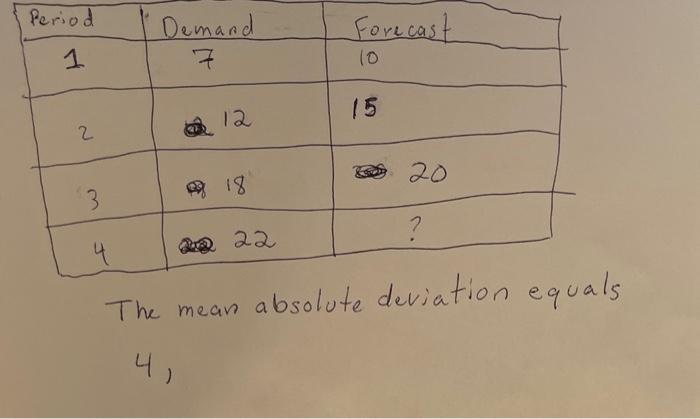 Period Demand Forecast
1 7 10
2 12 15
3 18 20
4 22 ?
The mean absolute deviation equals
4,